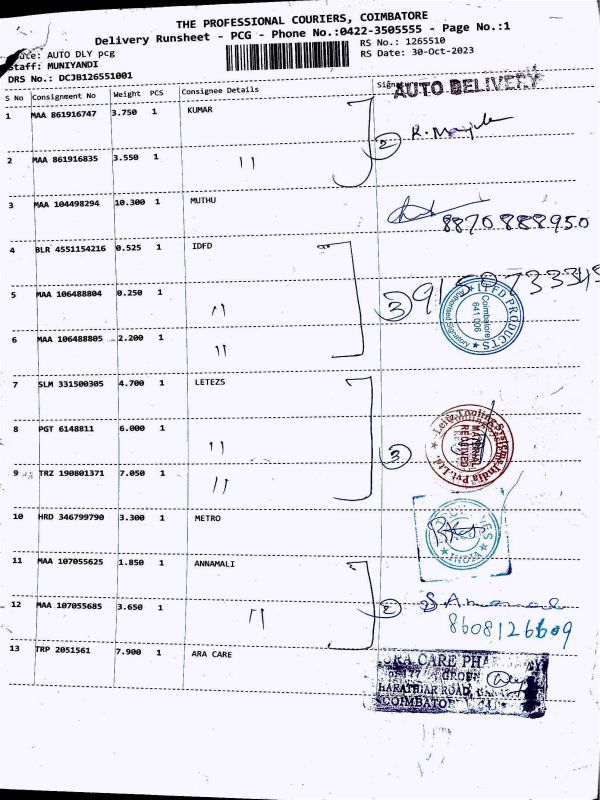 THE PROFESSIONAL COURIERS, COIMBATORE
Delivery Runsheet - PCG - Phone No.:0422-3505555 - Page No.:1
Route: AUTO DLY pcg
RS No.: 1265510
Staff: MUNIYANDI
RS Date: 30-Oct-2023
DRS No.: DCJB126551001
S No Consignment No Weight PCS Consignee Details
AUTO DELIVERY
1 MAA 861916747 3.750 1 KUMAR
2
2 MAA 861916835 3.550 1 "
3 MAA 104498294 10.300 1 MUTHU
8870888950
4 BLR 4551154216 0.525 1 IDFD
5 MAA 106488804 0.250 1 "
3
6 MAA 106488805 2.200 1 "
ITFD PRODUCTS
Coimbatore
641 006
Authorised Signatory
7 SLM 331500305 4.700 1 LETEZS
8 PGT 6148811 6.000 1 "
3
Leitz Tooling Systems India Pvt. Ltd.
MATERIAL
RECEIVED
9 TRZ 190801371 7.050 1 "
10 HRD 346799790 3.300 1 METRO
INDIA
11 MAA 107055625 1.850 1 ANNAMALI
12 MAA 107055685 3.650 1 "
2
8608126609
13 TRP 2051561 7.900 1 ARA CARE
CARE
BHARATHIAR ROAD,
COIMBATORE